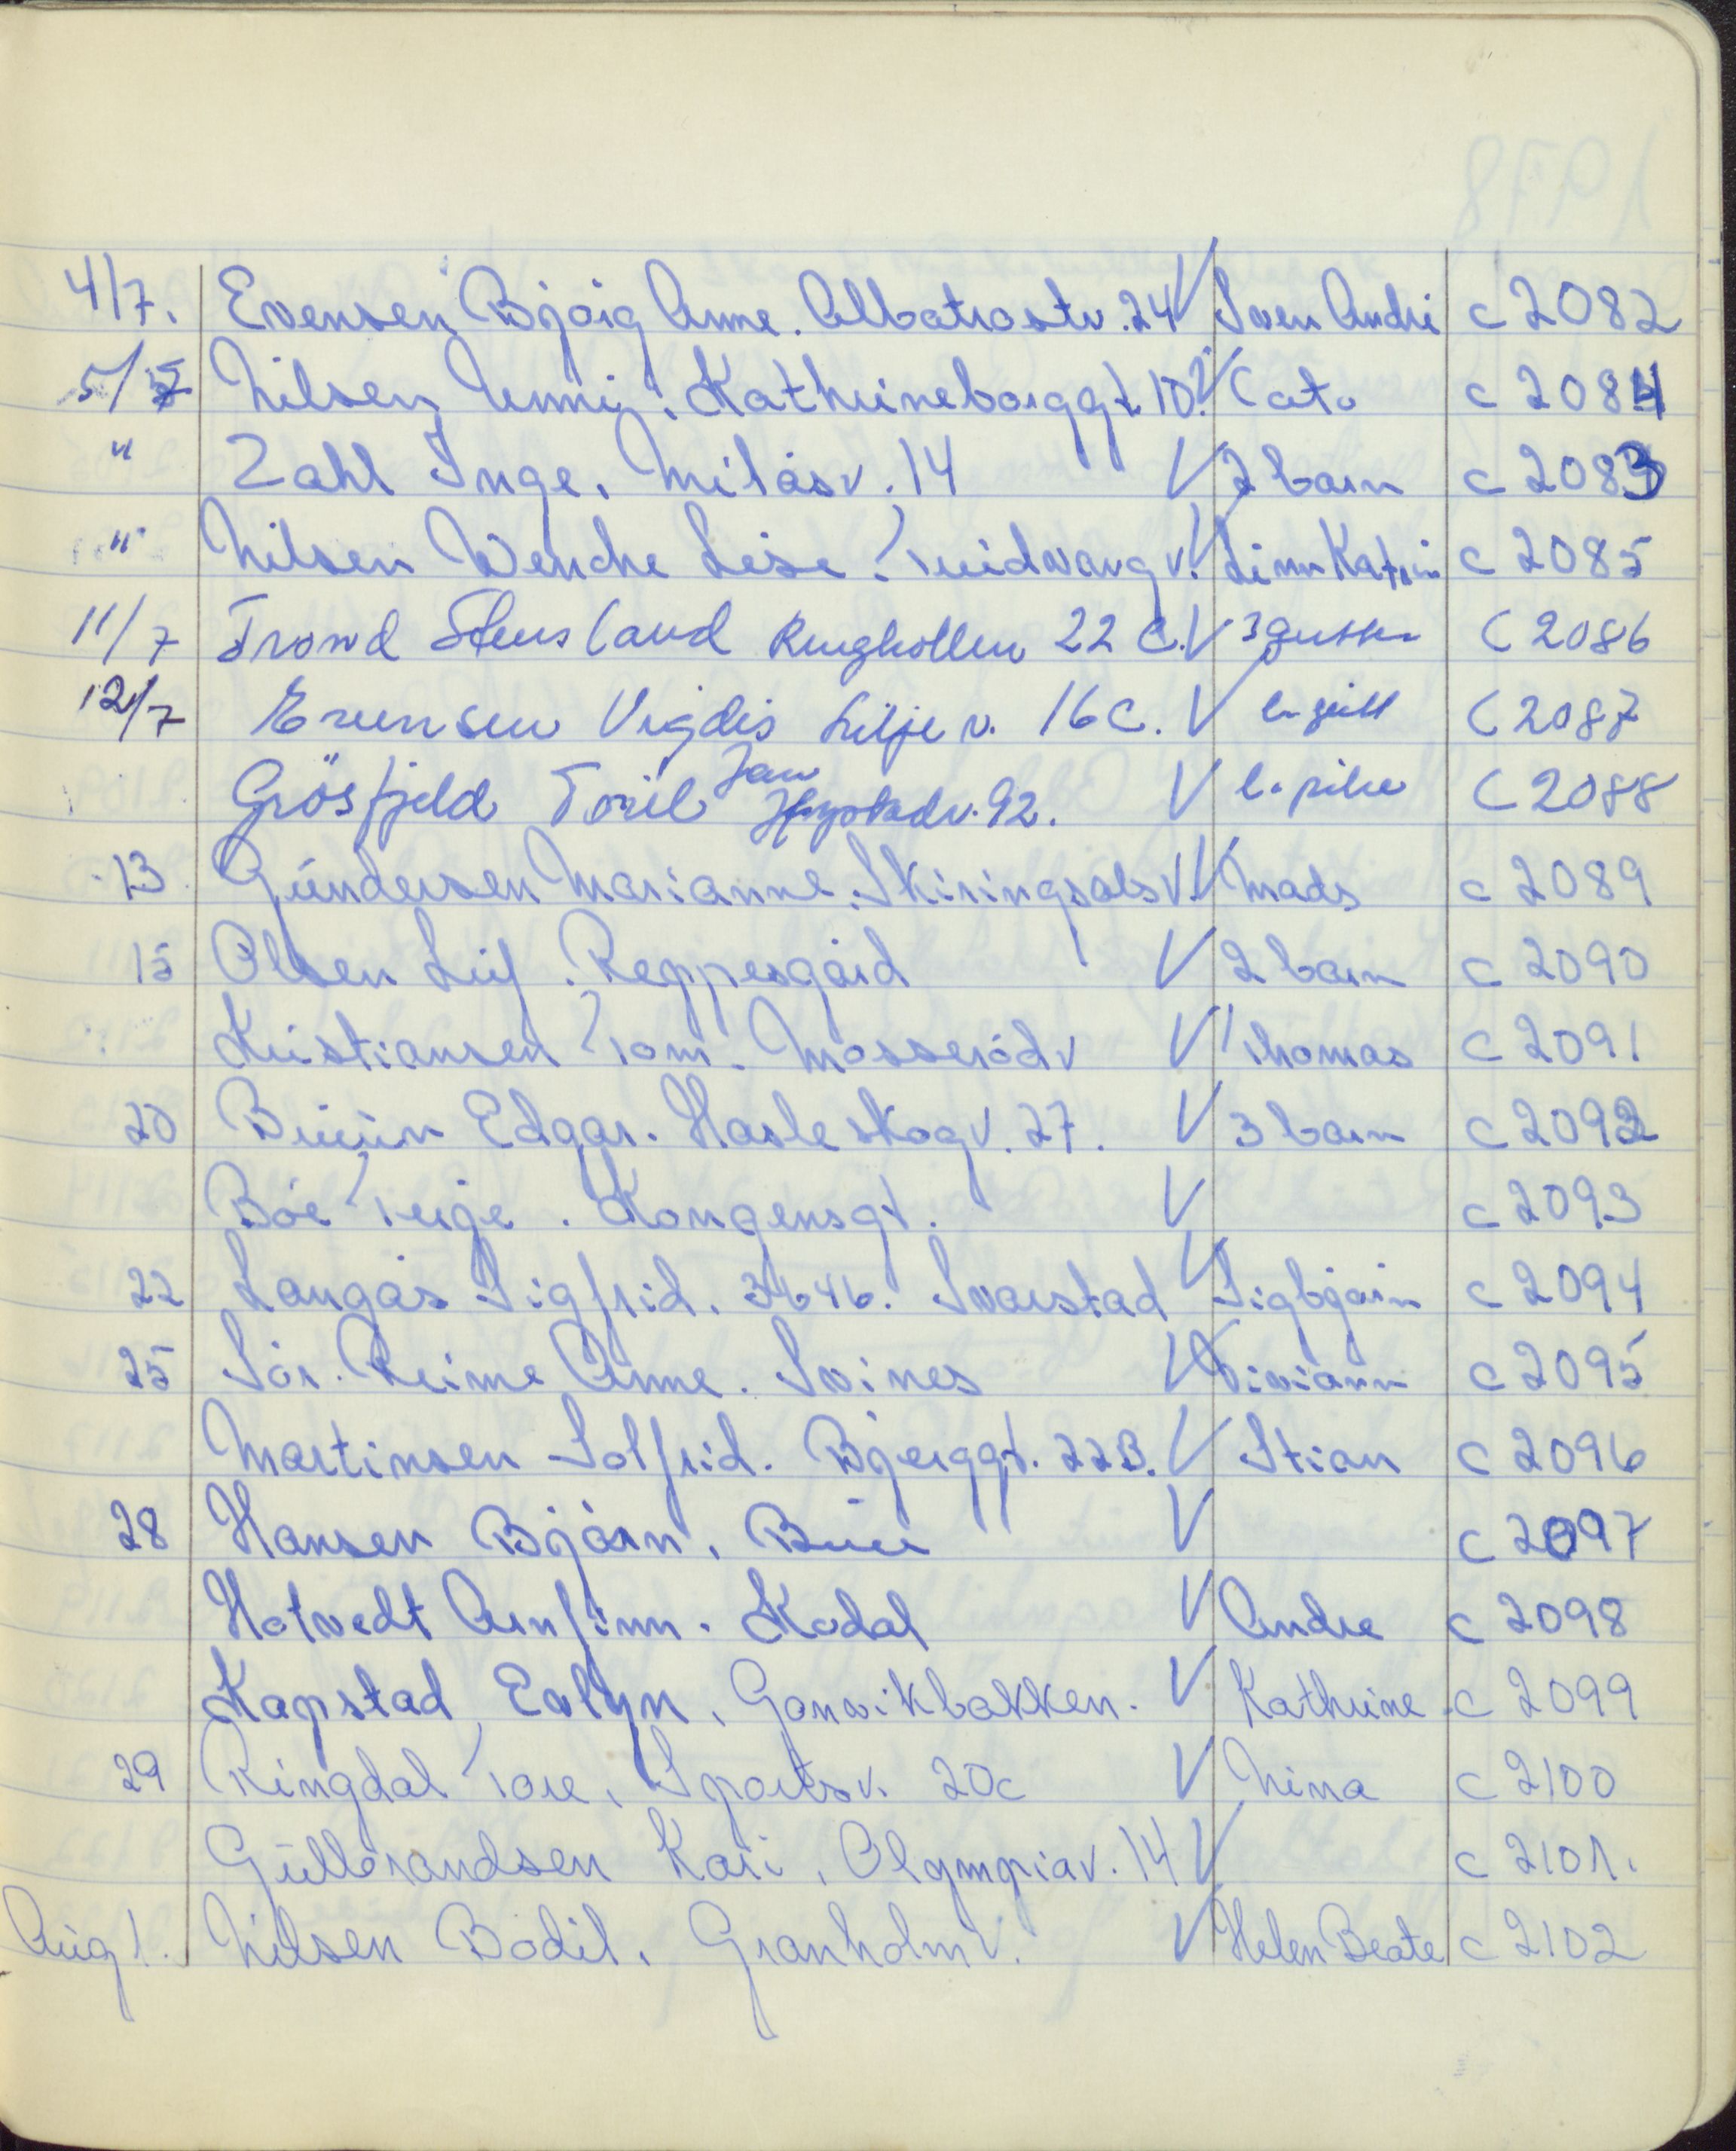 4/7. Evensen Bjørg Anne. Albatrostv. 24 V Sven André c 2082
5/7 Nilsen Unni. Kathrineborggt 10 V Cato c 2084
" Zahl Inge. Milåsv. 14 V 2 barn c 2083
" Nilsen Wenche Lise. Tveidvangv. V Linn Katrin c 2085
11/7 Trond Stensland Ringkollen 22 C. V 3 gutter C 2086
12/7 Evensen Vigdis Lilje v. 16 C. V C 2087
Grøsfjeld Toril Jan 92. V l. pike C 2088
13 Gundersen Marianne. Skiringsalsv. V Mads c 2089
15 Olsen Leif. Reppesgård V 2 barn c 2090
Kristiansen Tom. Mosserødv V Thomas c 2091
20 Bruun Edgar. Hasleskogv. 27. V 3 barn c 2092
Bøe Terje. Kongensgt. V c 2093
22 Langås Sigfrid. 3646. Svarstad V Sigbjørn c 2094
25 Sør. Reime Anne. Svines V Viviann c 2095
Martinsen Solfrid. Bjerggt. 22B. V Stian c 2096
28 Hansen Bjørn. V c 2097
Hotvedt Arnfinn. Kodal V Andre c 2098
Kapstad Evlyn. Gonvikbakken. V Kathrine c 2099
29 Ringdal Tore. Sportsv. 20c V Nina c 2100
Gulbrandsen Kari. Olympiav. 14 V c 2101.
Aug 1. Nilsen Bodil. Granholmv. V Helen Beate c 2102